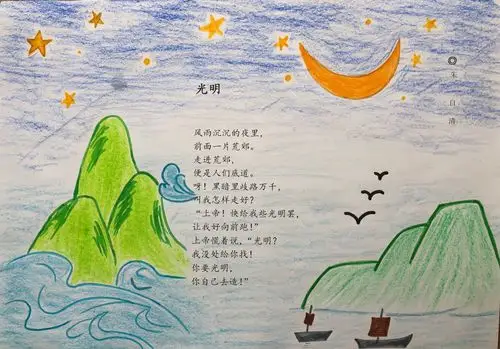 光明
◎朱自清
风雨沉沉的夜里，
前面一片荒郊。
走进荒郊，
便是人们底道。
呀！黑暗里歧路万千，
叫我怎样走好？
“上帝！快给我些光明罢，
让我好向前跑！”
上帝慌着说，“光明？
我没处给你找！
你要光明，
你自己去造！”